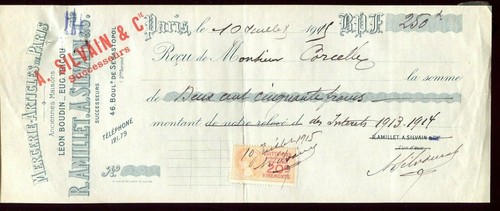 MERCERIE-ARTICLES DE PARIS
Anciennes Maisons
LEON BOUDIN - EUG.
R. AMILLET, A. SILVAIN
SUCCESSEURS
46, Boulᵈ DE SÉBASTOPOL
TÉLÉPHONE
A. SILVAIN & Cie
Successeurs
Paris, le 10 Juillet 1915 B.P.F. 250
Reçu de Monsieur Corcelle
la somme
de Deux cent cinquante francs
montant de notre relevé des Interets 1913-1914
R. AMILLET, A. SILVAIN
10 Juillet 1915